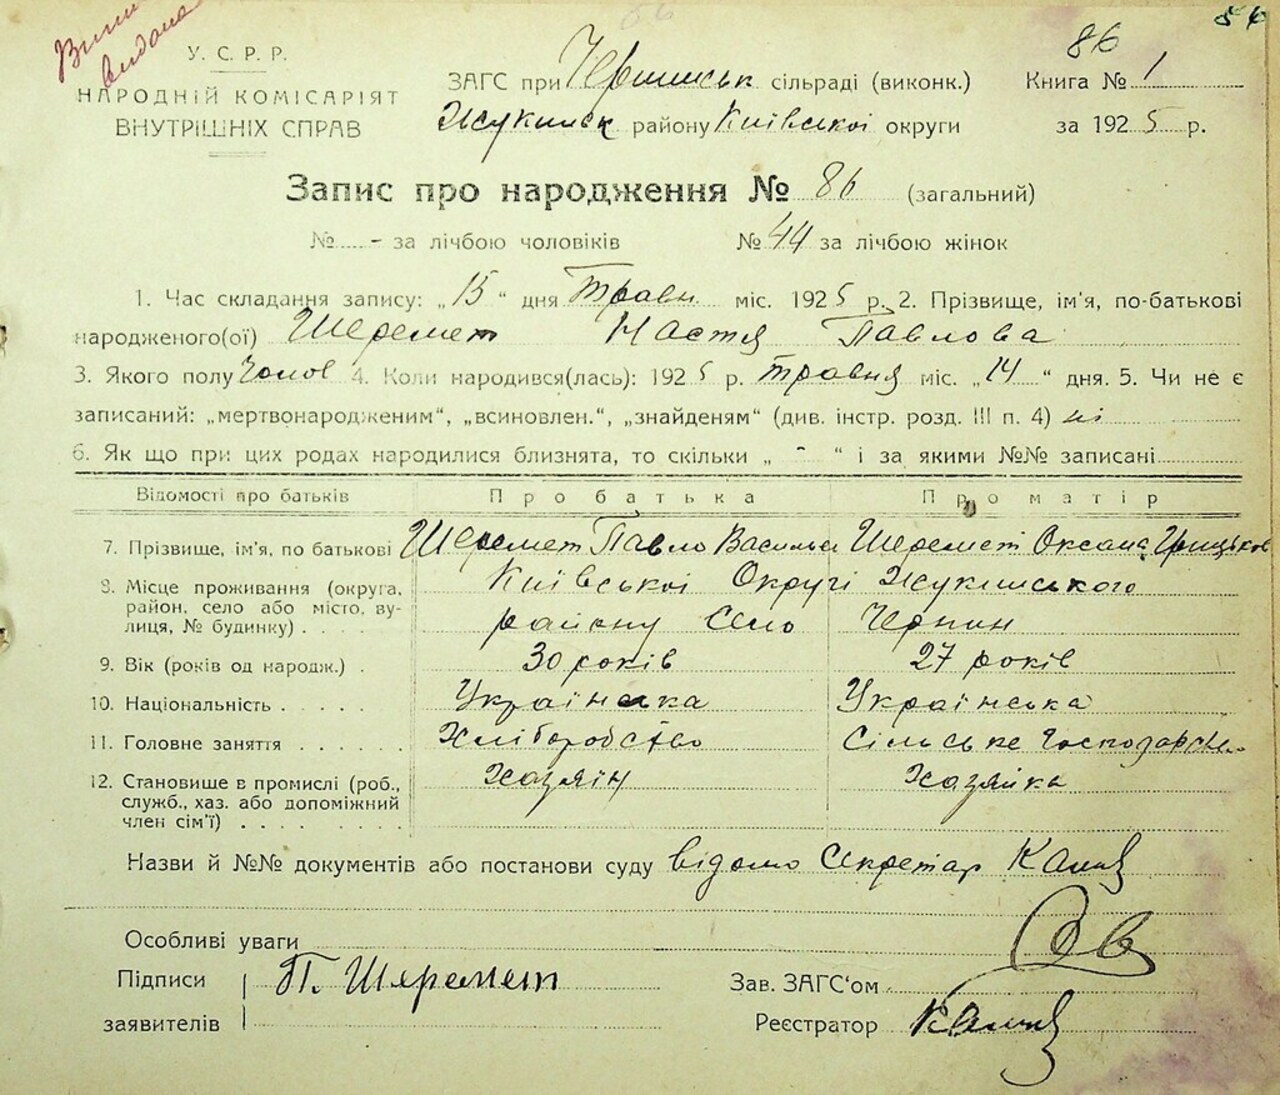 Вип
видана
86
56
У. С. Р. Р.
НАРОДНІЙ КОМІСАРІЯТ
ВНУТРІШНІХ СПРАВ
ЗАГС при Чернинськ сільраді (виконк.) Книга № 1
Жукинск району Київської округи за 1925 р.
Запис про народження № 86 (загальний)
№ - за лічбою чоловіків № 44 за лічбою жінок
1. Час складання запису: „15“ дня Травн міс. 1925 р. 2. Прізвище, ім'я, по-батькові
народженого(ої) Шеремет Настя Павлова
3. Якого полу Чолов 4. Коли народився(лась): 1925 р. травня міс. „14“ дня. 5. Чи не є
записаний: „мертвонародженим“, „всиновлен.“, „знайденям“ (див. інстр. розд. III п. 4) ні
6. Як що при цих родах народилися близнята, то скільки „ - “ і за якими №№ записані
Відомості про батьків Про батька Про матір
7. Прізвище, ім'я, по батькові Шеремет Павло Васильев Шеремет Оксана Грицьков
8. Місце проживання (округа, Київської Округі Жукинського
район, село або місто, ву-
лиця, № будинку) . . . . району Село Чернин
9. Вік (років од народж.) . 30 років 27 років
10. Національність . . . . . Українська Українська
11. Головне заняття . . . . . . Хліборобство Сільське Господарство
12. Становище в промислі (роб., Хазяїн Хазяйка
служб., хаз. або допоміжний
член сім'ї) . . . . . . . .
Назви й №№ документів або постанови суду відомо Секретар
Особливі уваги
Підписи П. Шеремет Зав. ЗАГС'ом
заявителів Реєстратор